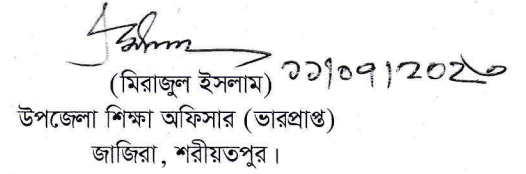 (মিরাজুল ইসলাম)
উপজেলা শিক্ষা অফিসার (ভারপ্রাপ্ত)
জাজিরা, শরীয়তপুর।